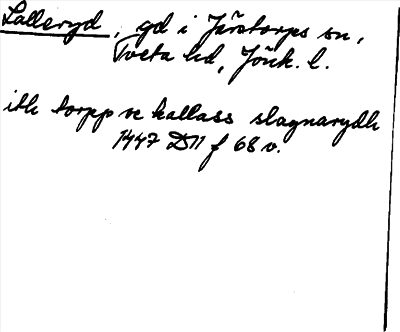 Lalleryd, gd i Järstorps sn,
Tveta hd, Jönk. l.
ith torpp ve kallass slagnarydh
1447 D11 f 68 v.